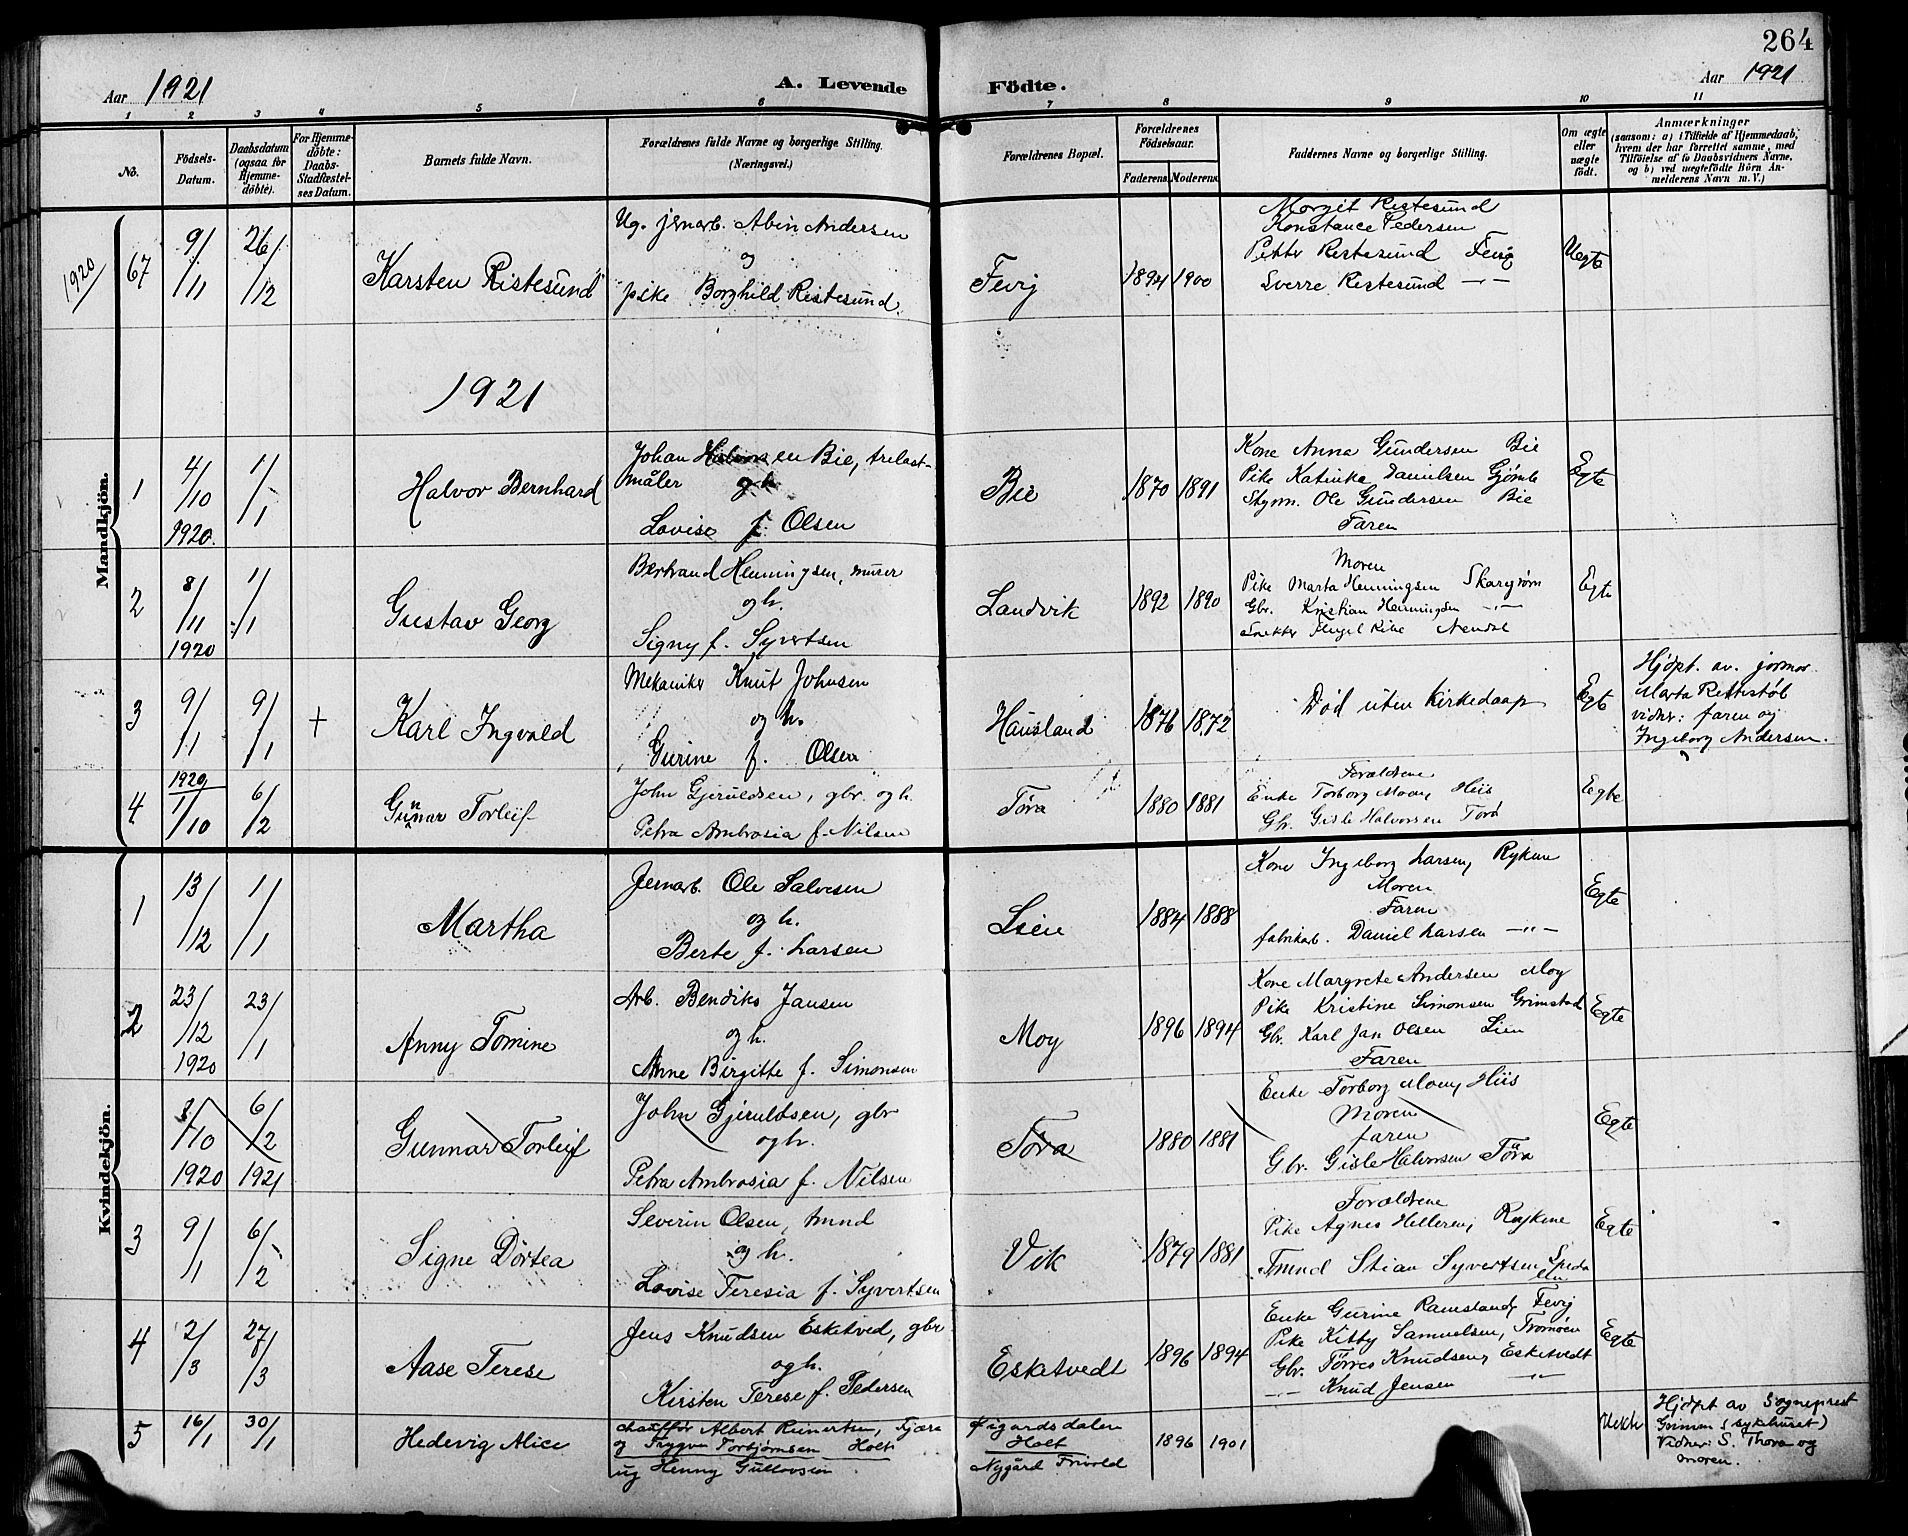 264
Aar 1921
A. Levende Födte.
Aar 1921
1 2 3 4 5 6 7 8 9 10 11
No.
Födsels-Datum.
Daabsdatum (ogsaa for Hjemme-döbte).
For Hjemme-döbte: Daabs-Stadfæstel-ses Datum.
Barnets fulde Navn.
Forældrenes fulde Navne og borgerlige Stilling.
(Næringsvei.)
Forældrenes Bopæl.
Forældrenes Födselsaar.
Faderens Moderens
Faddernes Navne og borgerlige Stilling.
Om ægte eller uægte födt.
Anmærkninger
(saasom: a) i Tilfælde af Hjemmedaab,
hvem der har forrettet samme, med
Tilföielse af to Daabsvidners Navne,
og b) ved uægtefödte Börn An-
melderens Navn m. V.)
Mandkjön.
1920
67 9/11 26/12
Karsten Ristesund
Ug. jernarb. Abin Andersen
og
pike Borghild Ristesund
Fevig 1894 1900
Margit Ristesund
Konstance Pedersen
Petter Ristesund Fevig
Sverre Ristesund —"—
Uegte
1921
1 4/10 1920. 1/1
Halvor Bernhard
Johan Halvorsen Bie, trelast-
måler og h.
Lovise f. Olsen
Bie 1870 1891
Kone Anna Gundersen Bie
Pike Katinka Danielsen Gjömle
Styrm. Ole Gundersen Bie
Faren
Egte
2 8/11 1920 1/1
Gustav Georg
Bertrand Henningsen, murer
og h.
Signy f. Syvertsen
Landvik 1892 1890
Moren
Pike Marta Henningsen
Gbr. Kristian Henningsen —"—
Egte
3 9/1 9/1 +
Karl Ingvald
Mekaniker Knut Johnsen
og h.
Gurine f. Olsen
Hausland 1876 1872
Död uten kirkedaap
Egte
Hjdpt. av. jormor
Marta Rettestöl
vidner: faren og
Ingeborg Andersen.
4 1920 1/10 6/2
Gunnar Torleif
John Gjeruldsen, gbr. og h.
Petra Ambrosia f. Nilsen
Töra 1880 1881
Forældrene
Enke Torborg Moen, Hiis
Gbr. Gisle Halvorsen Törå
Egte
Kvindekjön.
1 13/12 1/1
Martha
Jernarb. Ole Salvesen
og h.
Berte f. Larsen
Lien 1884 1888
Kone Ingeborg Larsen, Rykene
Moren
Faren
fabrikarb. Daniel Larsen —"—
Egte
2 23/12 1920 23/1
Anny Tomine
Arb. Bendiks Jansen
og h.
Anne Birgitte f. Simonsen
Moy 1896 1894
Kone Margrete Andersen Moy
Pike Kristine Simonsen Grimstad
Gbr. Karl Jan Olsen Lien
Faren
Egte
/10 1920 6/2 1921
Gunnar Torleif
John Gjeruldsen, gbr
og h.
Petra Ambrosia f. Nilsen
Töra 1880 1881
Enke Torborg Moen, Hiis
Moren
faren
Gbr. Gisle Halvorsen Töra
Egte
3 9/1 6/2
Signe Dörtea
Severin Olsen, tmnd
og h.
Lovise Teresia f. Syvertsen
Vik 1879 1881
Forældrene
Pike Agnes Helleren, Rykene
Tmnd Stian Syvertsen
Egte
4 2/3 27/3
Aase Terese
Jens Knudsen Esketved, gbr
og h.
Kirsten Terese f. Pedersen
Esketvedt 1896 1894
Enke Gurine Ramsland, Fevig
Pike Kitty Samuelsen, Tromöen
Gbr. Törres Knudsen, Esketvedt
—"— Knud Jensen —"—
Egte
5 16/1 30/1
Hedevig Alice
chauffør Albert Reinertsen, Fjære
og Trygve Torbjørnsen Holt
ug Henny Gullovsen
Øigardsdalen
Holt
Nygård Frivold
1896 1901
Uekte
Hjdpt av Sogneprest
Grimm (sykhuset)
Vidner: S. Thora og
moren.